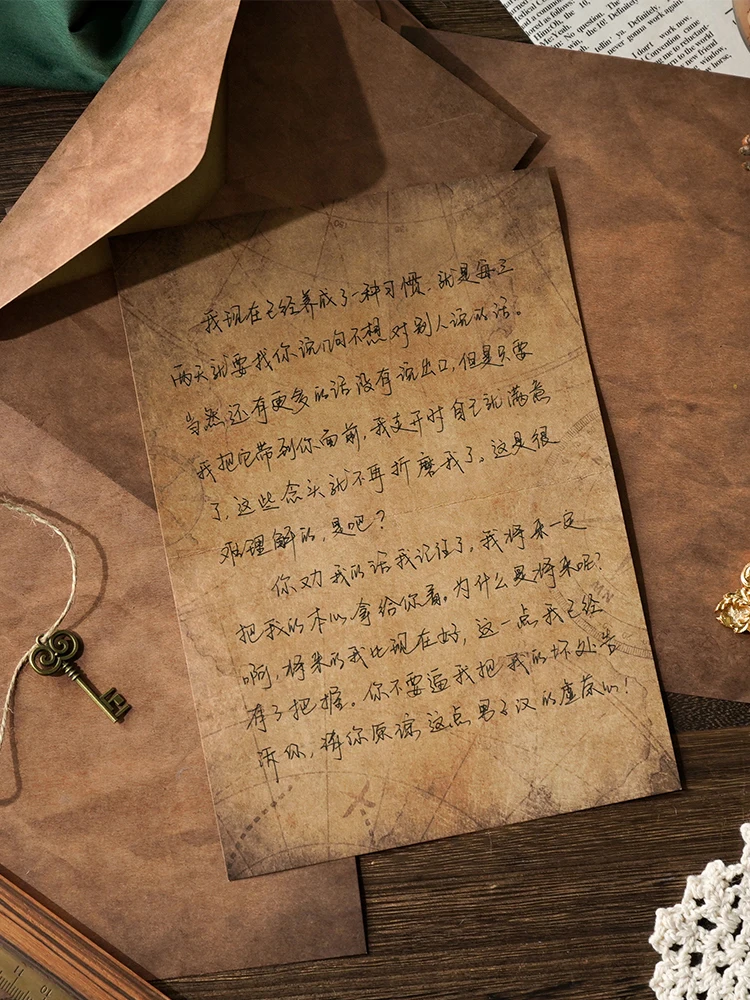 tical Co
a commu
owed as follows:
Him:Oh, the 10'
Me:Yeah.
No question. The
the 10'. Definitely
Jollin' ya. Definitely
never gonna work again.
I don't work now,
came to me
to reluctantly
new friend,
horse,
我现在已经养成了一种习惯，就是每三
两天就要找你说几句不想对别人说的话。
当然还有更多的话没有说出口，但是只要
我把它带到你面前，我走开时自己就满意
了，这些念头就不再折磨我了。这是很
难理解的，是吧？
你劝我的话我记住了，我将来一定
把我的本心拿给你看。为什么是将来呢？
啊，将来的我比现在好，这一点我已经
有了把握。你不要逼我把我的坏处告
诉你，请你原谅这点男子汉的虚荣心！